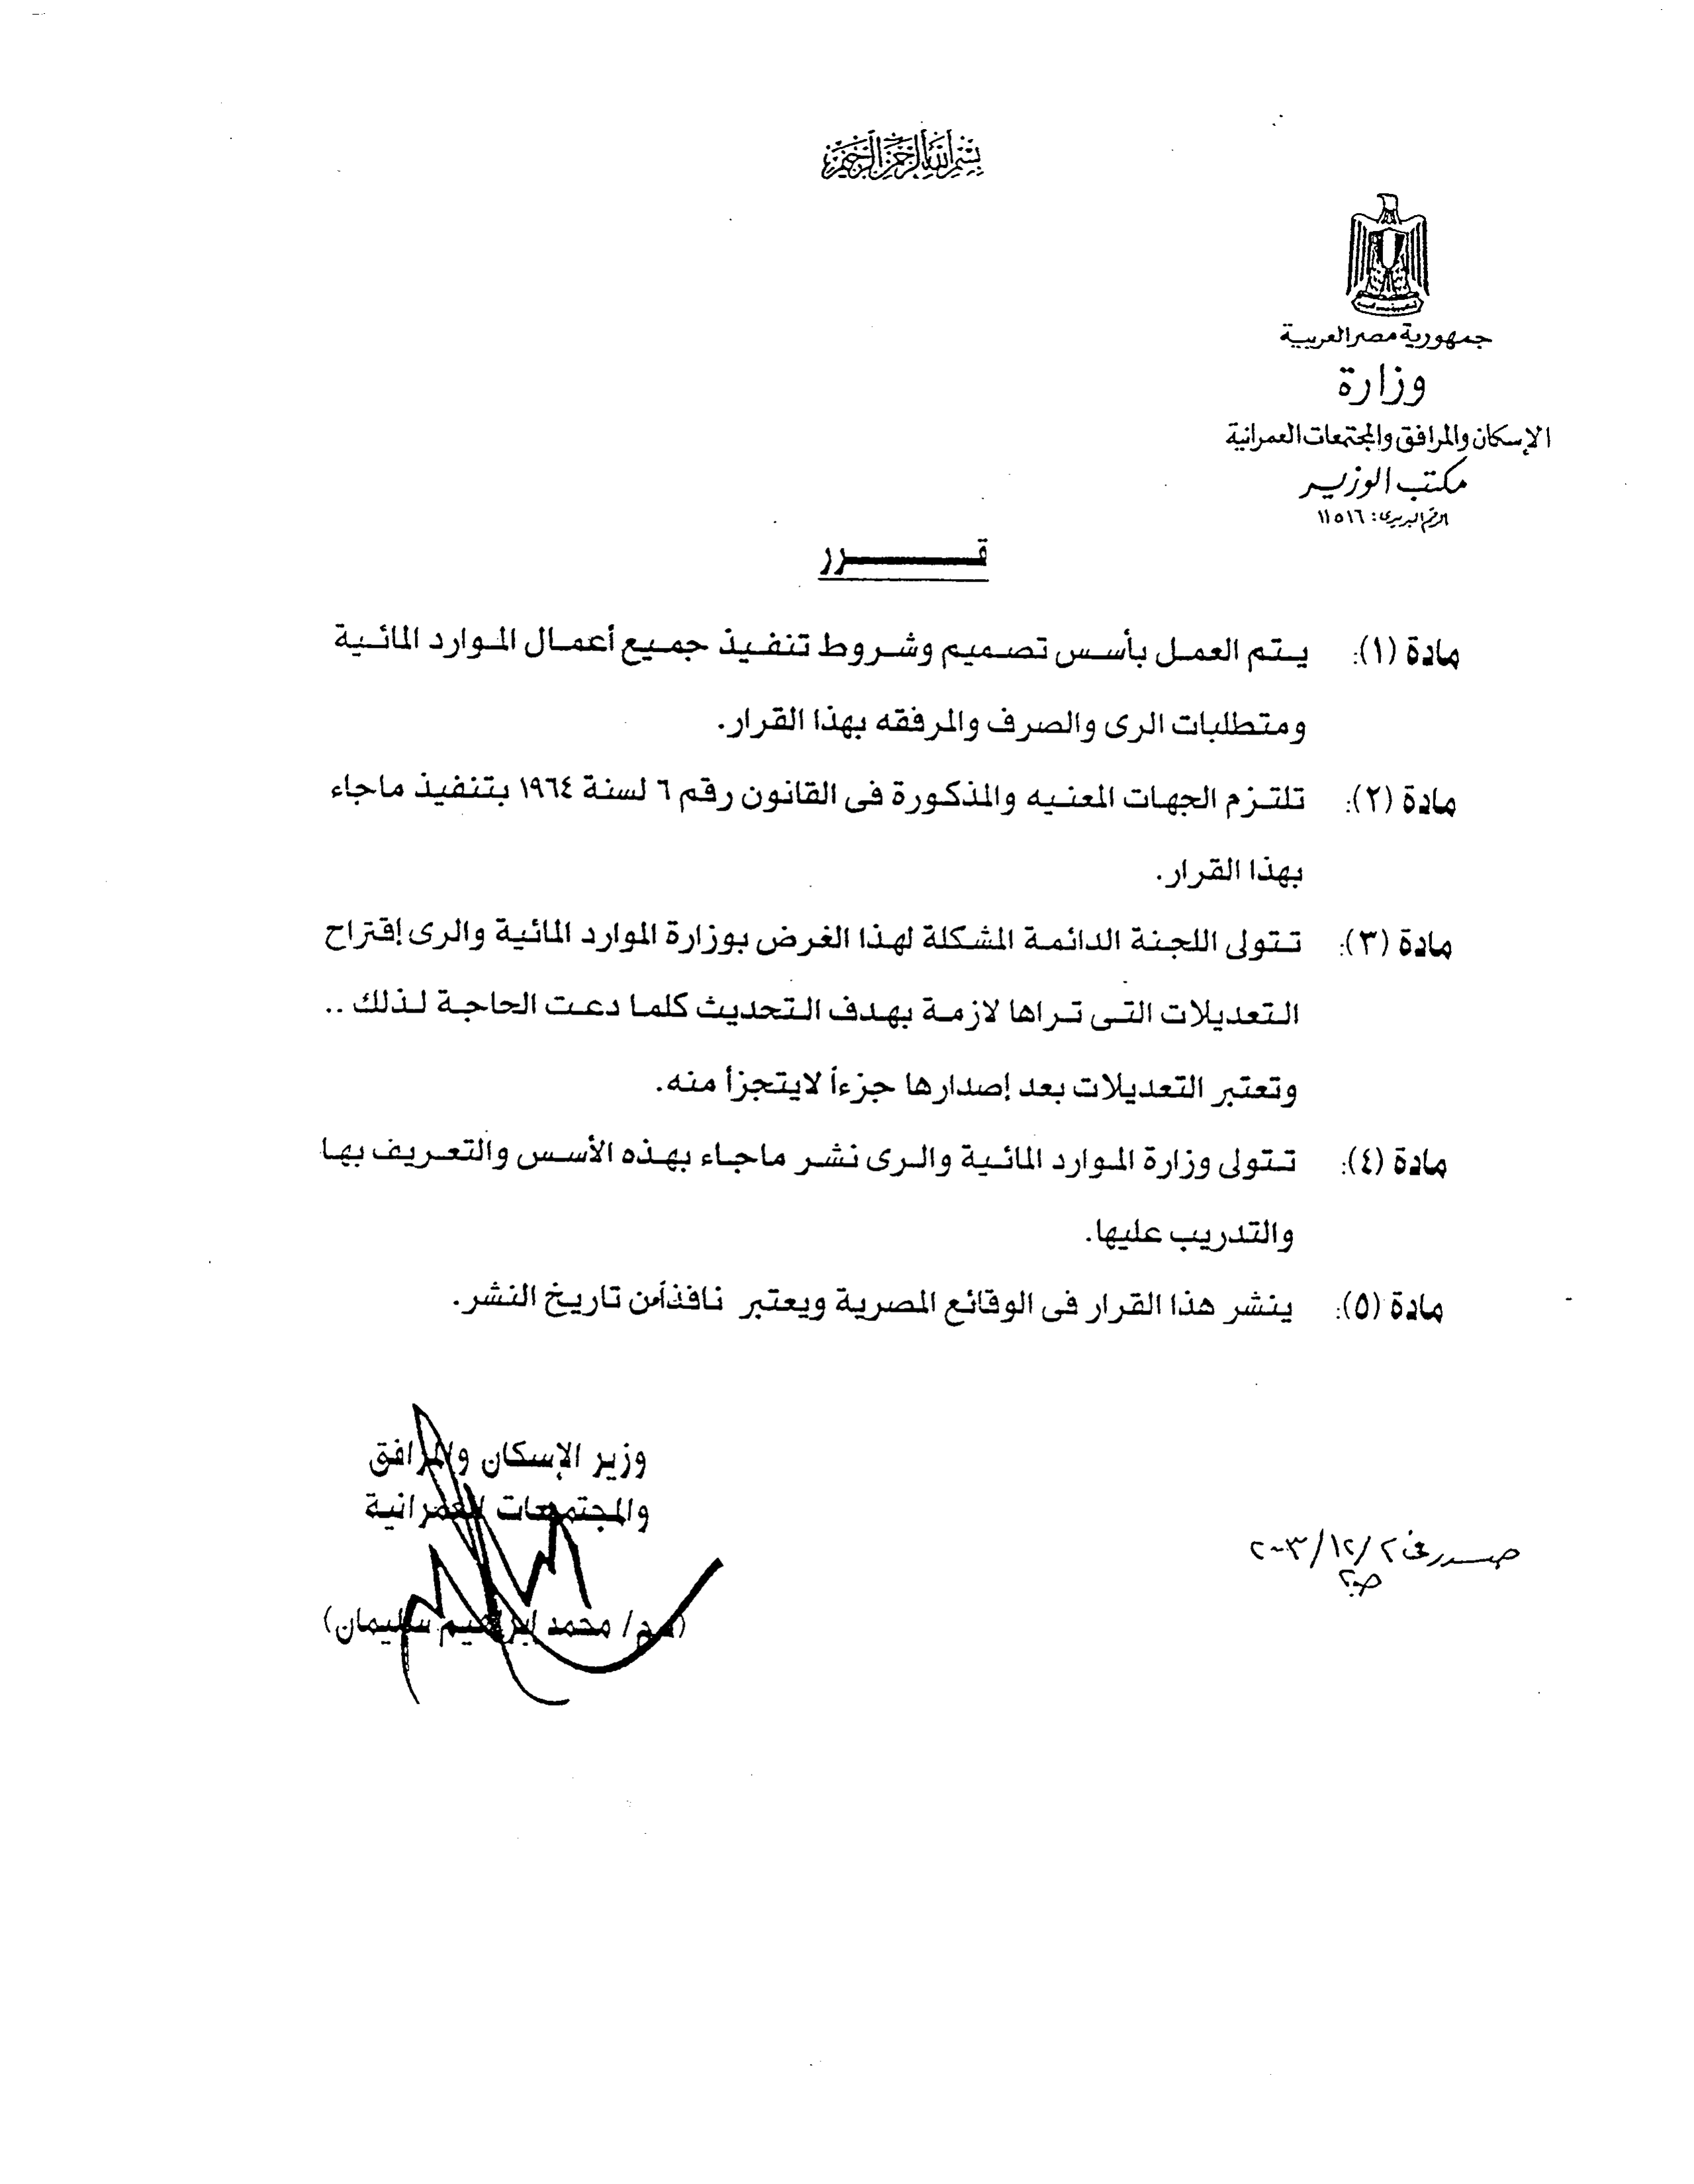 بسم الله الرحمن الرحيم
جمهورية مصر العربية
وزارة
الإسكان والمرافق والمجتمعات العمرانية
مكتب الوزير
الرقم البريدى: ١١٥١٦
قـــــــرر
مادة (١): يتم العمل بأسس تصميم وشروط تنفيذ جميع أعمال الموارد المائية
ومتطلبات الرى والصرف والمرفقه بهذا القرار.
مادة (٢): تلتزم الجهات المعنيه والمذكورة فى القانون رقم ٦ لسنة ١٩٦٤ بتنفيذ ماجاء
بهذا القرار.
مادة (٣): تتولى اللجنة الدائمة المشكلة لهذا الغرض بوزارة الموارد المائية والرى إقتراح
التعديلات التى تراها لازمة بهدف التحديث كلما دعت الحاجة لذلك ..
وتعتبر التعديلات بعد إصدارها جزءاً لايتجزأ منه.
مادة (٤): تتولى وزارة الموارد المائية والرى نشر ماجاء بهذه الأسس والتعريف بها
والتدريب عليها.
مادة (٥): ينشر هذا القرار فى الوقائع المصرية ويعتبر نافذاً من تاريخ النشر.
وزير الإسكان والمرافق
والمجتمعات العمرانية
(أ.د.م/ محمد إبراهيم سليمان)
صدر فى ٢/ ١٢/ ٢٠٠٣